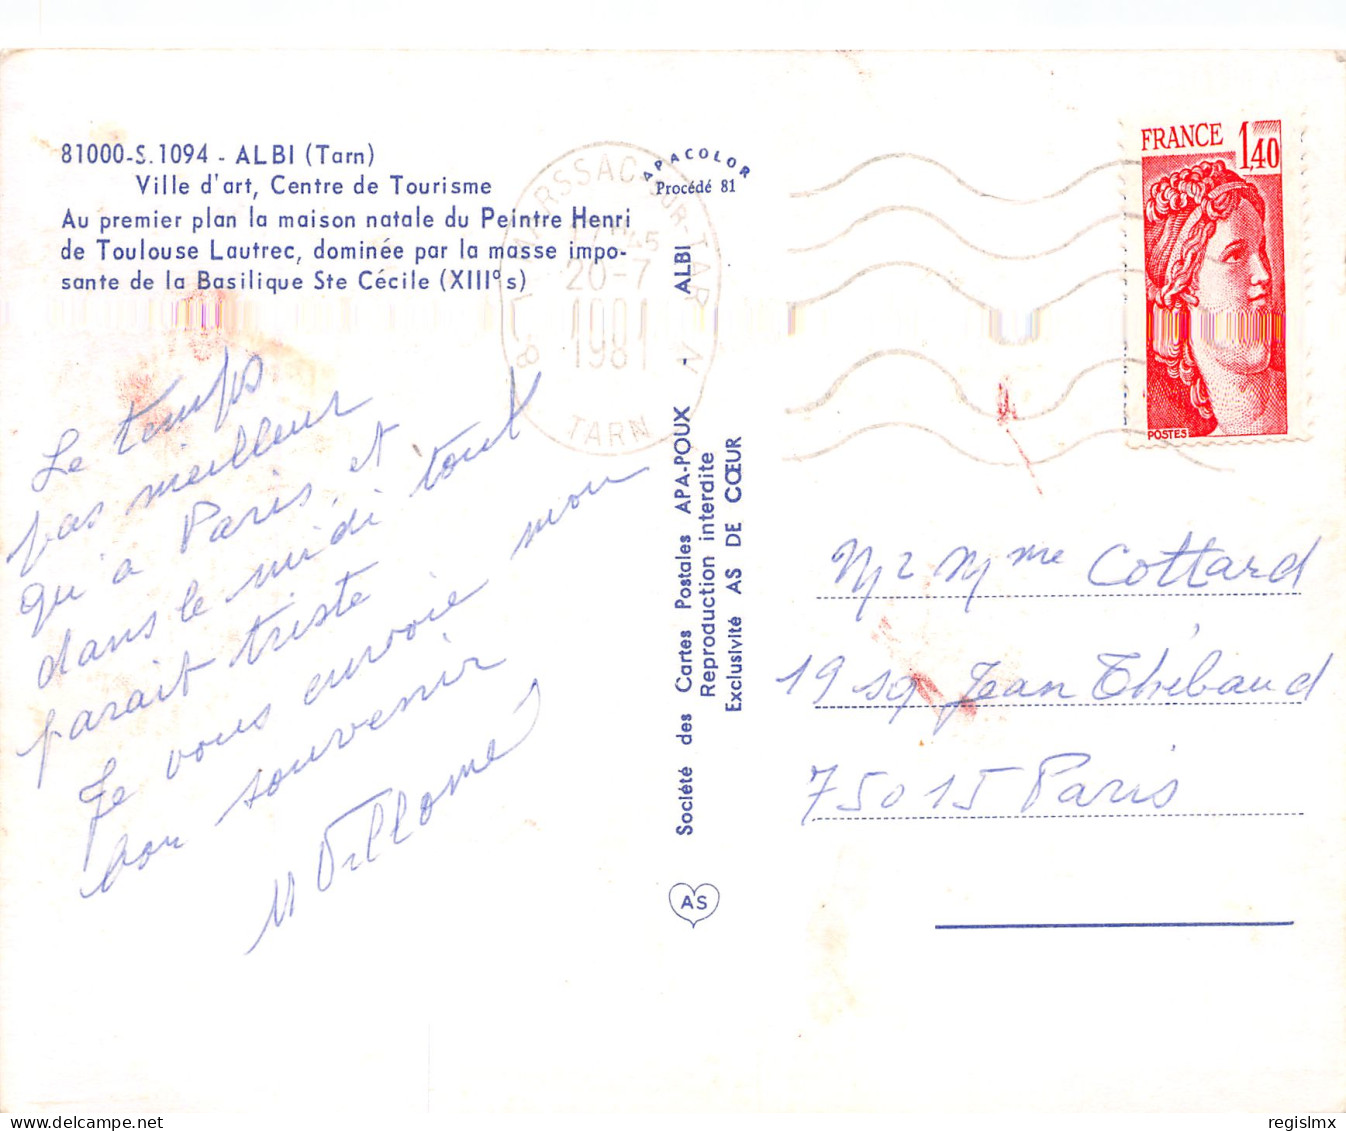 81000-S.1094 - ALBI (Tarn)
Ville d'art, Centre de Tourisme
Au premier plan la maison natale du Peintre Henri
de Toulouse Lautrec, dominée par la masse impo-
sante de la Basilique Ste Cécile (XIII° s)
APACOLOR
Procédé 81
MARSSAC-SUR-TARN
17H45
20-7
1981
TARN
FRANCE 1,40
POSTES
Le temps
pas meilleur
qu'a Paris, et
dans le midi tout
parait triste
Je vous envoie mon
bon souvenir
Société des Cartes Postales APA-POUX - ALBI
Reproduction interdite
Exclusivité AS DE CŒUR
AS
Mr Mme Cottard
19 sq Jean Thébaud
75015 Paris
regislmx